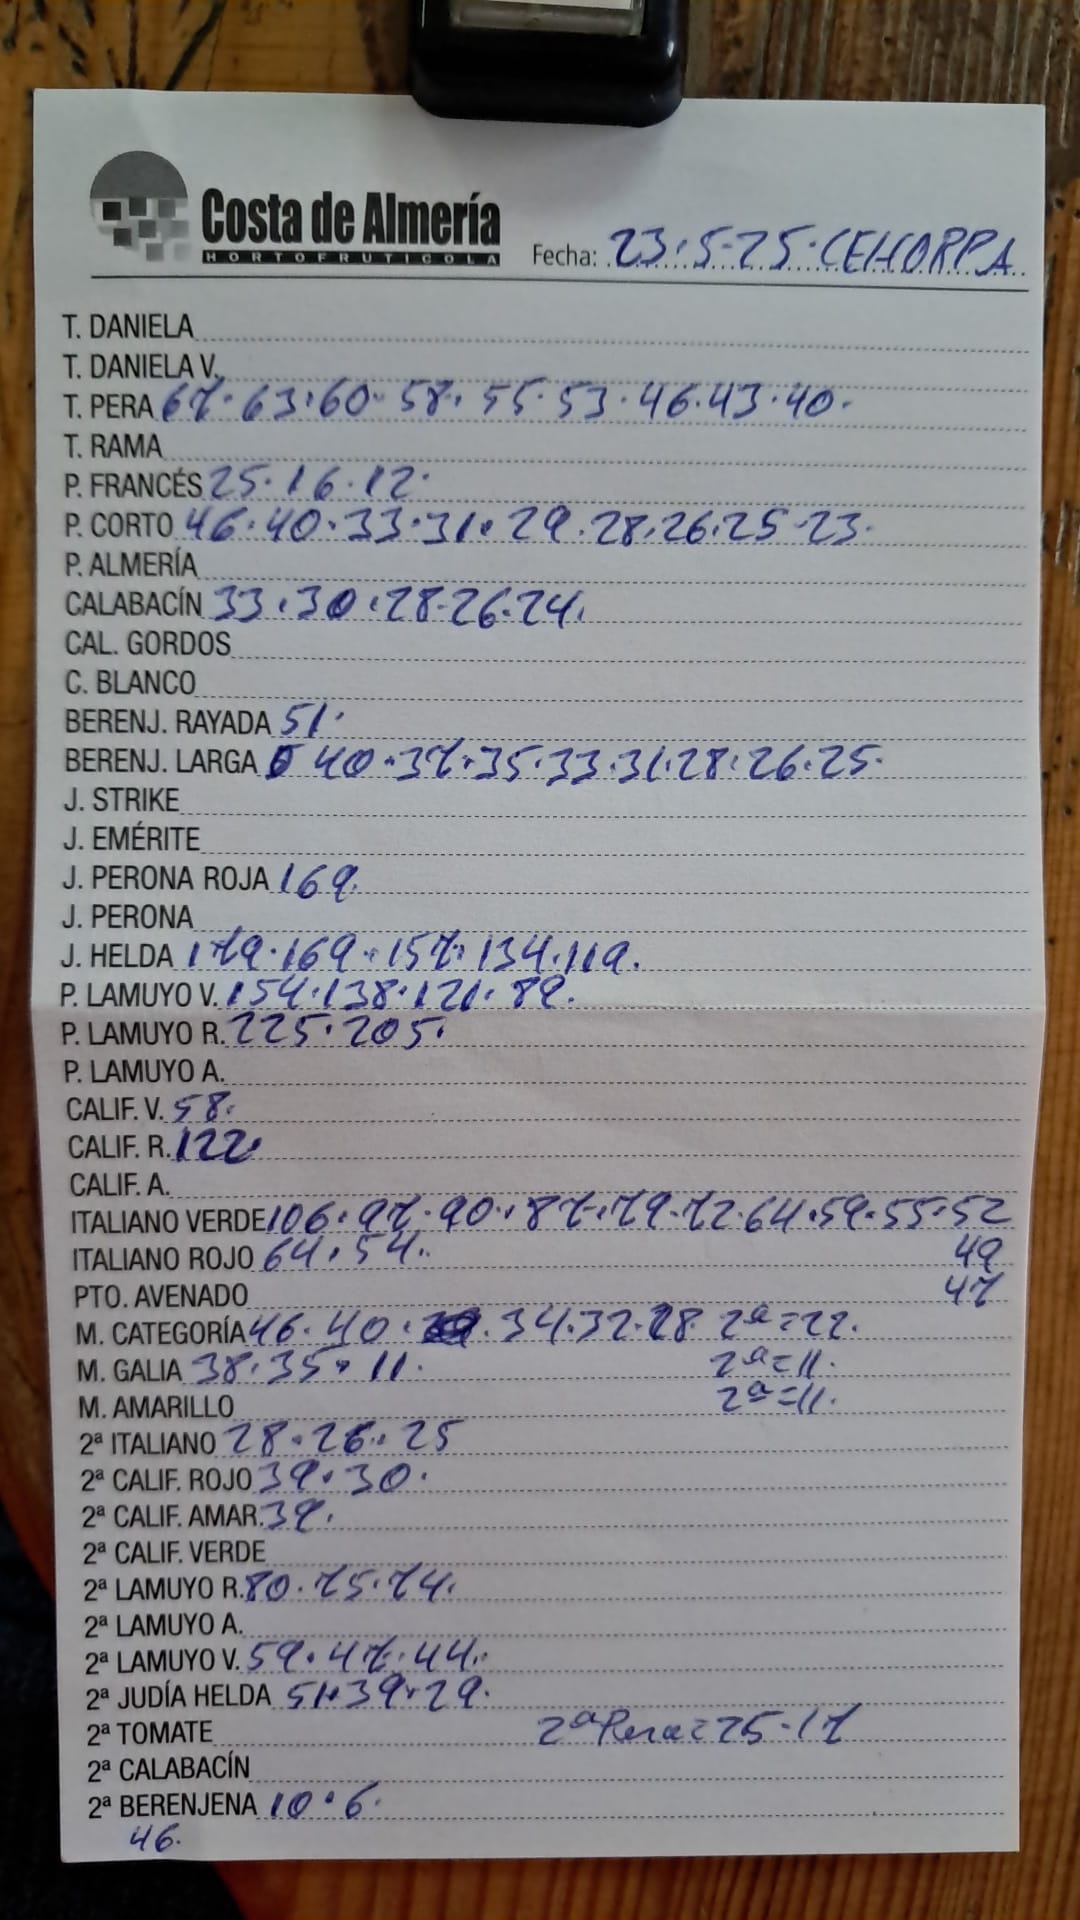 Costa de Almería
HORTOFRUTICOLA
Fecha: 23.5.25. CEHORPA
T. DANIELA
T. DANIELA V.
T. PERA 67.63.60.58.55.53.46.43.40.
T. RAMA
P. FRANCÉS 25.16.12.
P. CORTO 46.40.33.31.29.28.26.25.23.
P. ALMERÍA
CALABACÍN 33.30.28.26.24.
CAL. GORDOS
C. BLANCO
BERENJ. RAYADA 51.
BERENJ. LARGA 40.37.35.33.31.28.26.25.
J. STRIKE
J. EMÉRITE
J. PERONA ROJA 169.
J. PERONA
J. HELDA 179.169.157.134.119.
P. LAMUYO V. 154.138.121.89.
P. LAMUYO R. 225.205.
P. LAMUYO A.
CALIF. V. 58.
CALIF. R. 122.
CALIF. A.
ITALIANO VERDE 106.97.90.87.79.72.64.59.55.52
ITALIANO ROJO 64.54. 49
PTO. AVENADO 47
M. CATEGORÍA 46.40. .34.32.28 2ª=22.
M. GALIA 38.35.11. 2ª=11.
M. AMARILLO 2ª=11.
2ª ITALIANO 28.26.25
2ª CALIF. ROJO 39.30.
2ª CALIF. AMAR. 39.
2ª CALIF. VERDE
2ª LAMUYO R. 80.75.74.
2ª LAMUYO A.
2ª LAMUYO V. 59.47.44.
2ª JUDÍA HELDA 51.39.29.
2ª TOMATE 2ª Pera=25.17
2ª CALABACÍN
2ª BERENJENA 10.6.
46.